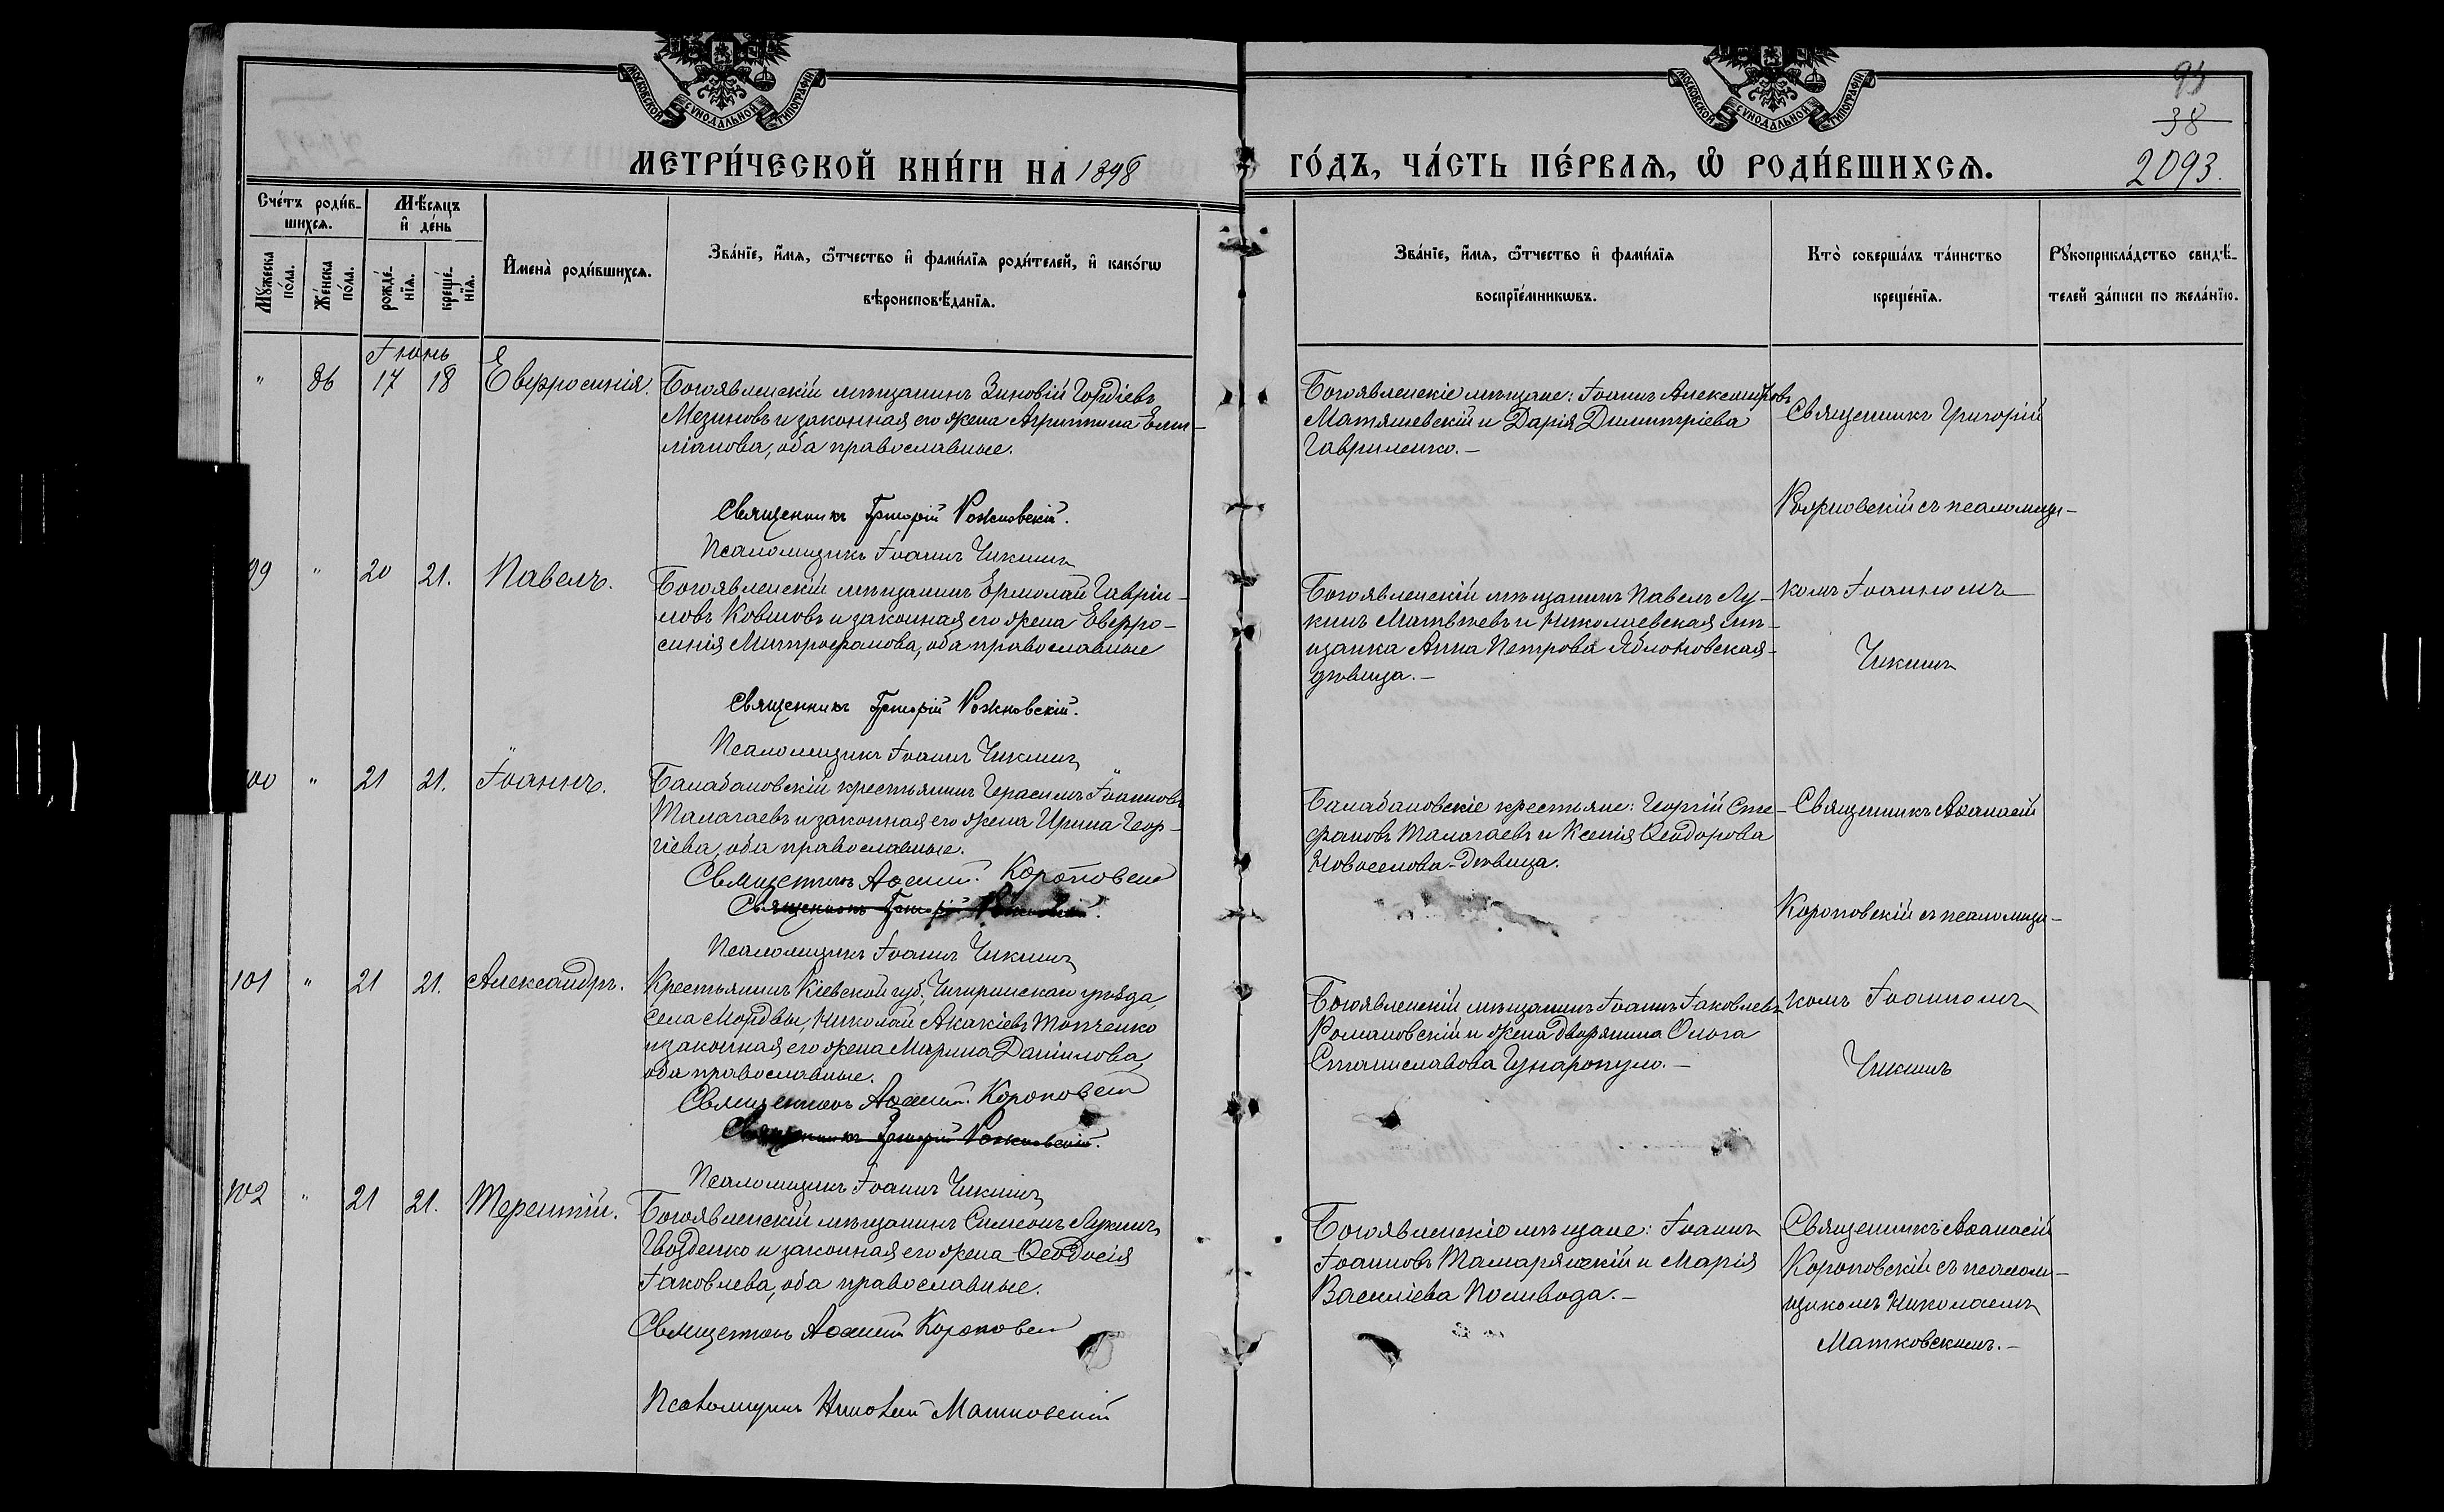 МОСКОВСКОЙ СУНОДАЛЬНОЙ ТИПОГРАФІИ
МОСКОВСКОЙ СУНОДАЛЬНОЙ ТИПОГРАФІИ
95
38
2093.
МЕТРИ́ЧЕСКОЙ КНИ́ГИ НА 1898 ГО́ДЪ, ЧА́СТЬ ПЕ́РВАѦ, Ѡ РОДИ́ВШИХСѦ.
Сче́тъ роди́в-
шихсѧ.
Мꙋжеска
по́ла.
Же́нска
по́ла.
Мѣ́сяцъ
и҆ де́нь
рожде́-
нїѧ.
креще́-
нїѧ.
И҆мена̀ роди́вшихсѧ.
Зва́нїе, и҆́мѧ, ѻ҆́тчество и҆ фами́лїѧ роди́телей, и҆ како́гѡ
вѣроисповѣ́данїѧ.
Зва́нїе, и҆́мѧ, ѻ҆́тчество и҆ фами́лїѧ
воспрїе́мникѡвъ.
Кто̀ соверша́лъ та́инство
креще́нїѧ.
Рꙋкоприкла́дство свидѣ́-
телей за́писи по жела́нїю.
Іюнь
" 86 17 18 Евфросинія.
Богоявленскій мѣщанинъ Зиновій Гордіевъ
Мезиновъ и законная его жена Агриппина Еми-
ліанова, оба православные.
Священникъ Григорій Рожновскій.
Псаломщикъ Іоаннъ Чикинъ
Богоявленскіе мѣщане: Іоаннъ Александровъ
Матяшевскій и Дарія Димитріева
Гавриленко.-
Священникъ Григорій
Рожновскій съ псаломщи-
99 " 20 21. Павелъ.
Богоявленскій мѣщанинъ Ермолай Гаврии-
ловъ Ковшовъ и законная его жена Евфро-
синія Митрофанова, оба православные
Священникъ Григорій Рожновскій.
Псаломщикъ Іоаннъ Чикинъ
Богоявленскій мѣщанинъ Павелъ Лу-
кинъ Матвѣевъ и Николаевская мѣ-
щанка Анна Петрова Яблоновская-
дѣвица.-
комъ Іоанномъ
Чикинъ
100 " 21 21. Іоаннъ.
Балабановскій крестьянинъ Герасимъ Іоанновъ
Малагаевъ и законная его жена Ирина Геор-
гіева, оба православные.
Священникъ Аѳанасій Короповскій
Священникъ Григорій Рожновскій.
Псаломщикъ Іоаннъ Чикинъ
Балабановскіе крестьяне: Георгій Сте-
фановъ Малагаевъ и Ксенія Ѳеодорова
Новоселова-дѣвица.
Священникъ Аѳанасій
Короповскій съ псаломщи-
101 " 21 21. Александръ.
Крестьянинъ Кіевской губ. Чигиринскаго уѣзда,
села Мордвы, Николай Акакіевъ Топченко
и законная его жена Марина Даніилова,
оба православные.
Священникъ Аѳанасій Короповскій
Священникъ Григорій Рожновскій.
Псаломщикъ Іоаннъ Чикинъ
Богоявленскій мѣщанинъ Іоаннъ Іаковлевъ
Романовскій и жена дворянина Ольга
Станиславова Гунаропуло.-
комъ Іоанномъ
Чикинъ
102 " 21 21. Терентій.
Богоявленскій мѣщанинъ Симеонъ Лукинъ
Гвозденко и законная его жена Ѳеодосія
Іаковлева, оба православные.
Священникъ Аѳанасій Короповскій
Псаломщикъ Николай Матковскій
Богоявленскіе мѣщане: Іоаннъ
Іоанновъ Тамаряжскій и Марія
Василіева Поливода.-
Священникъ Аѳанасій
Короповскій съ псалом-
щикомъ Николаемъ
Матковскимъ.-